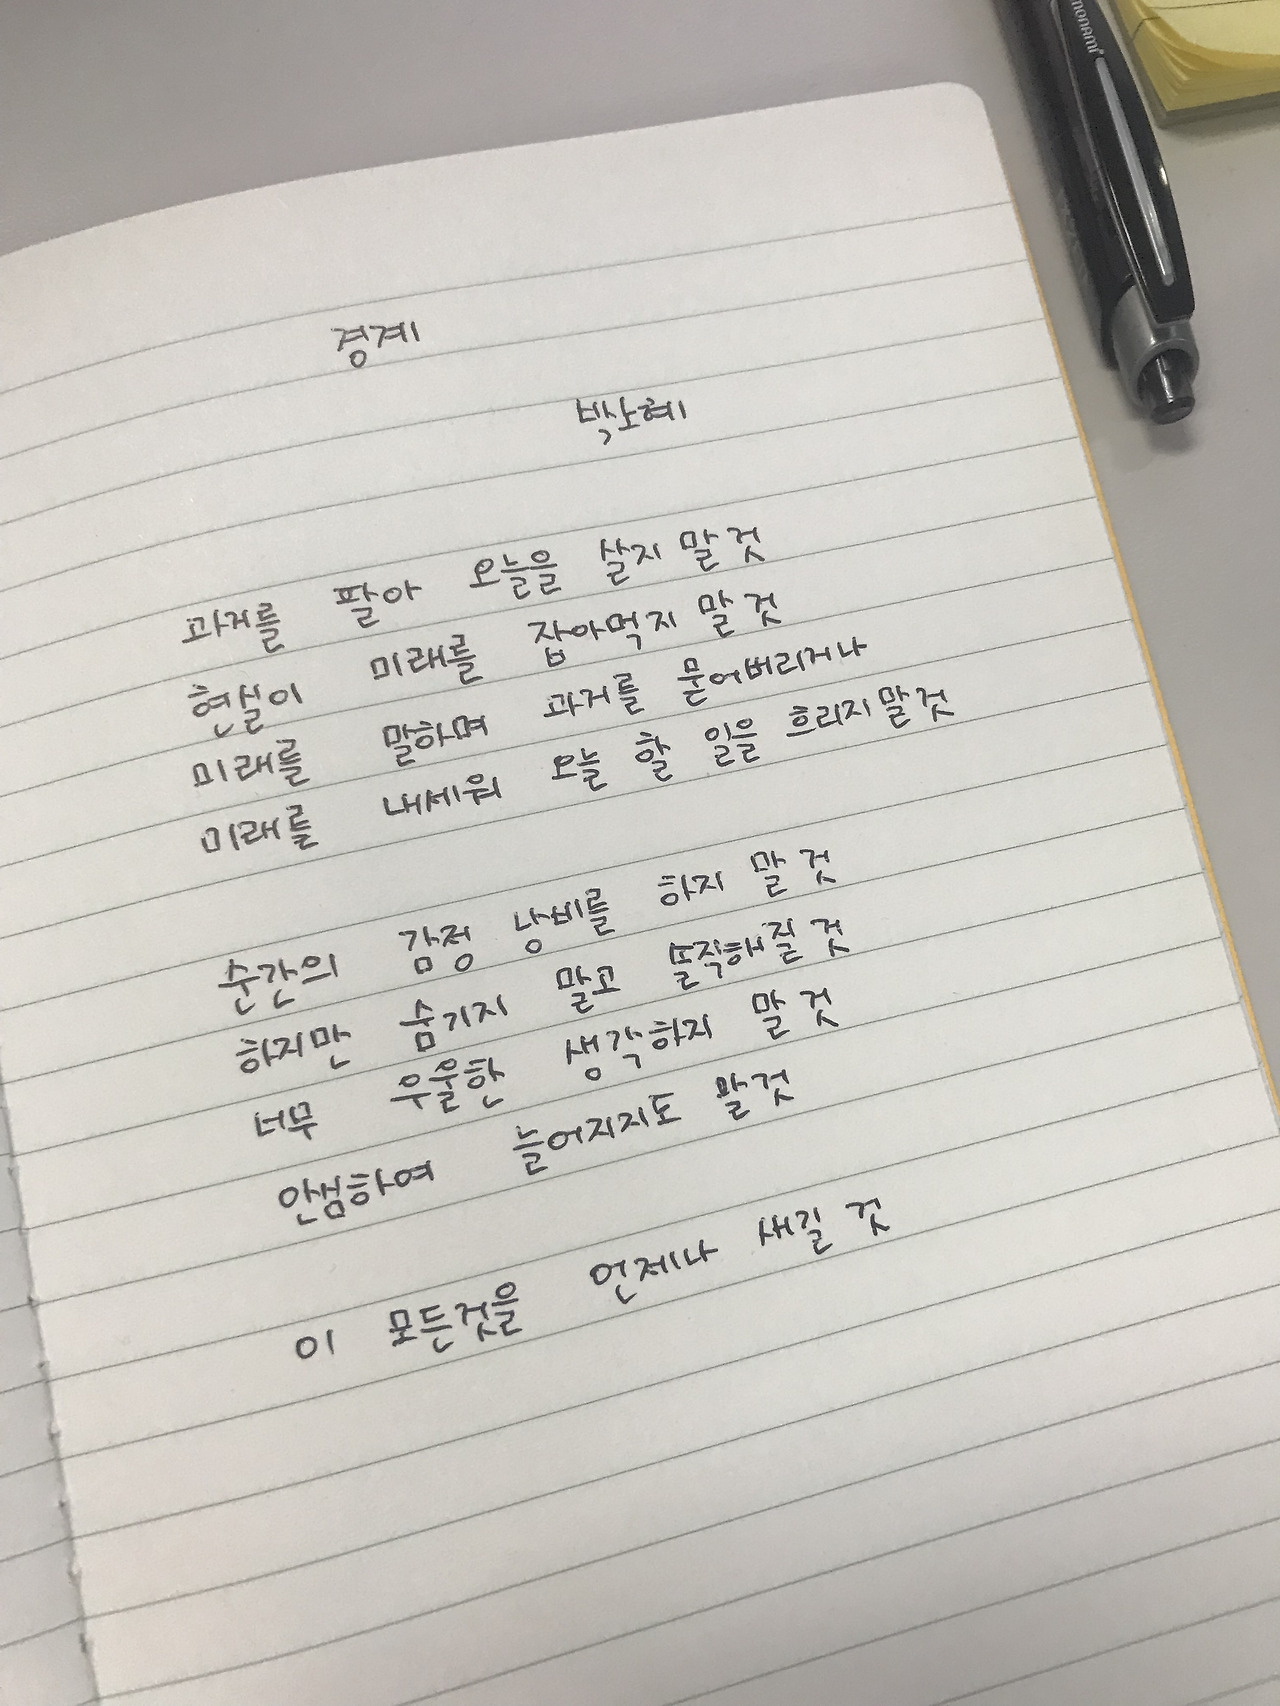 monami
경계
박노혜
과거를 팔아 오늘을 살지 말 것
현실이 미래를 잡아먹지 말 것
미래를 말하며 과거를 묻어버리거나
미래를 내세워 오늘 할 일을 흐리지 말 것
순간의 감정 낭비를 하지 말 것
하지만 숨기지 말고 솔직해질 것
너무 우울한 생각하지 말 것
안범하여 늘어지지도 말것
이 모든것을 언제나 새길 것